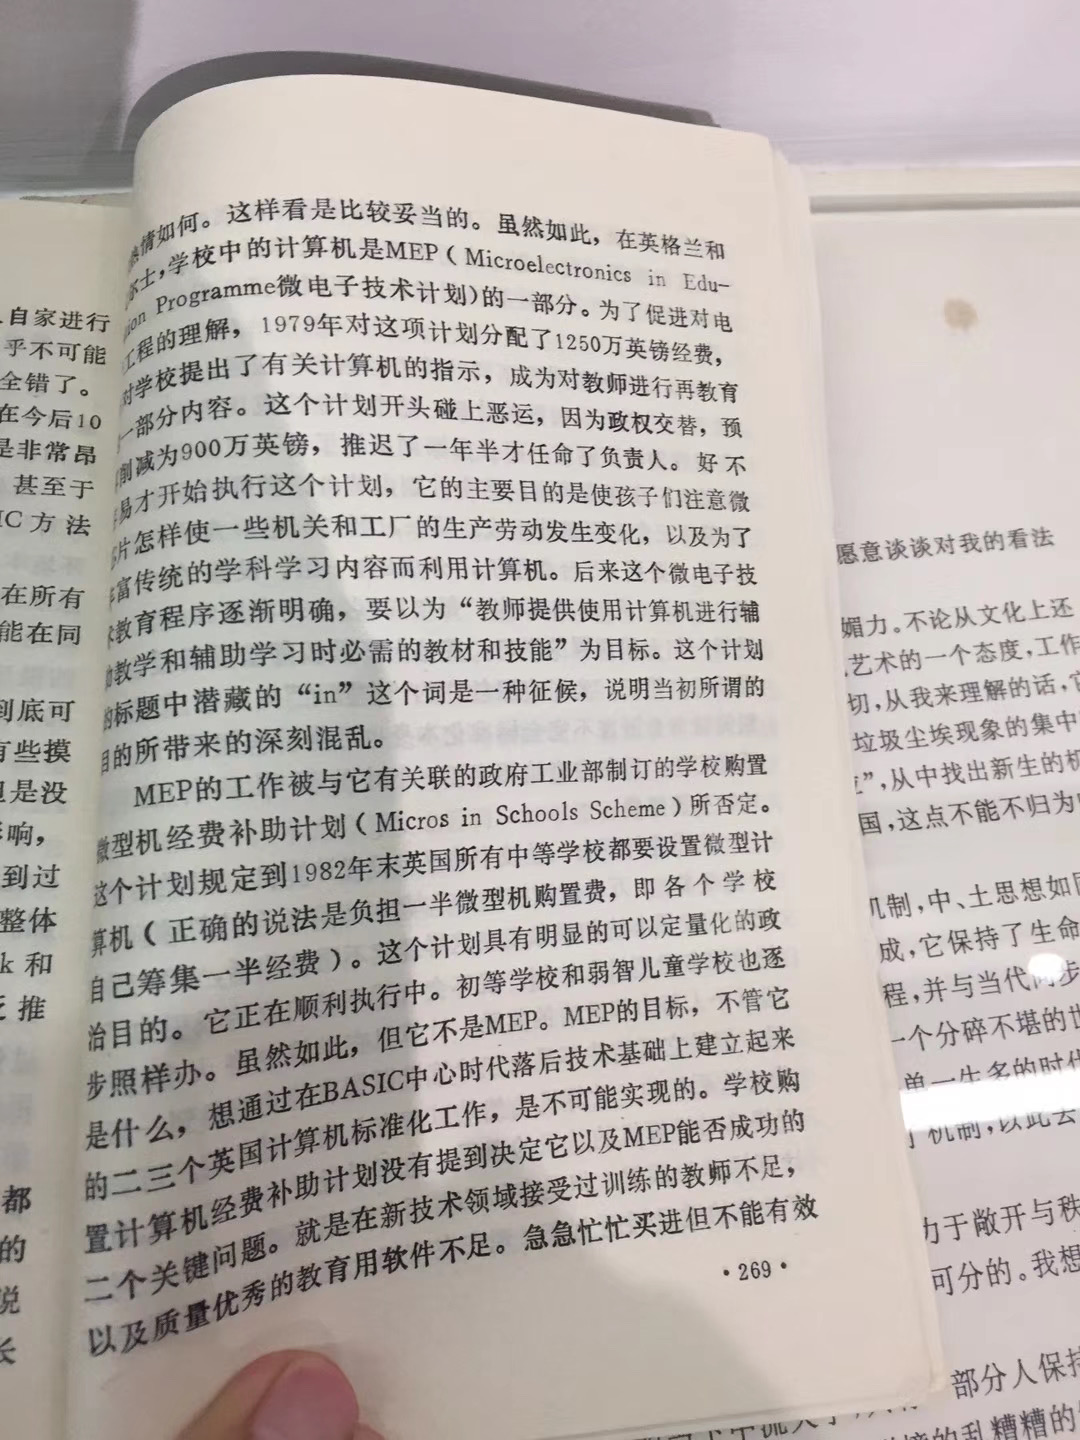 自家进行
乎不可能
全错了。
在今后10
是非常昂
甚至于
IC方法
在所有
能在同
到底可
有些摸
但是没
影响，
到过
整体
k和
推
都
的
说
长
热情如何。这样看是比较妥当的。虽然如此，在英格兰和
尔士，学校中的计算机是MEP（Microelectronics in Edu-
ion Programme微电子技术计划)的一部分。为了促进对电
工程的理解，1979年对这项计划分配了1250万英镑经费，
对学校提出了有关计算机的指示，成为对教师进行再教育
一部分内容。这个计划开头碰上恶运，因为政权交替，预
削减为900万英镑，推迟了一年半才任命了负责人。好不
易才开始执行这个计划，它的主要目的是使孩子们注意微
片怎样使一些机关和工厂的生产劳动发生变化，以及为了
富传统的学科学习内容而利用计算机。后来这个微电子技
术教育程序逐渐明确，要以为“教师提供使用计算机进行辅
助教学和辅助学习时必需的教材和技能”为目标。这个计划
的标题中潜藏的“in”这个词是一种征候，说明当初所谓的
目的所带来的深刻混乱。
MEP的工作被与它有关联的政府工业部制订的学校购置
微型机经费补助计划（Micros in Schools Scheme）所否定。
这个计划规定到1982年末英国所有中等学校都要设置微型计
算机（正确的说法是负担一半微型机购置费，即各个学校
自己筹集一半经费）。这个计划具有明显的可以定量化的政
治目的。它正在顺利执行中。初等学校和弱智儿童学校也逐
步照样办。虽然如此，但它不是MEP。MEP的目标，不管它
是什么，想通过在BASIC中心时代落后技术基础上建立起来
的二三个英国计算机标准化工作，是不可能实现的。学校购
置计算机经费补助计划没有提到决定它以及MEP能否成功的
二个关键问题。就是在新技术领域接受过训练的教师不足，
以及质量优秀的教育用软件不足。急急忙忙买进但不能有效
·269·
愿意谈谈对我的看法
媚力。不论从文化上还
艺术的一个态度，工作
切，从我来理解的话，它
垃圾尘埃现象的集中
”，从中找出新生的机
国，这点不能不归为
机制，中、土思想如同
成，它保持了生命
程，并与当代同步
一个分碎不堪的世
单一生多的时代
机制，以此去
力于敞开与秩
可分的。我想
部分人保持
的乱糟糟的